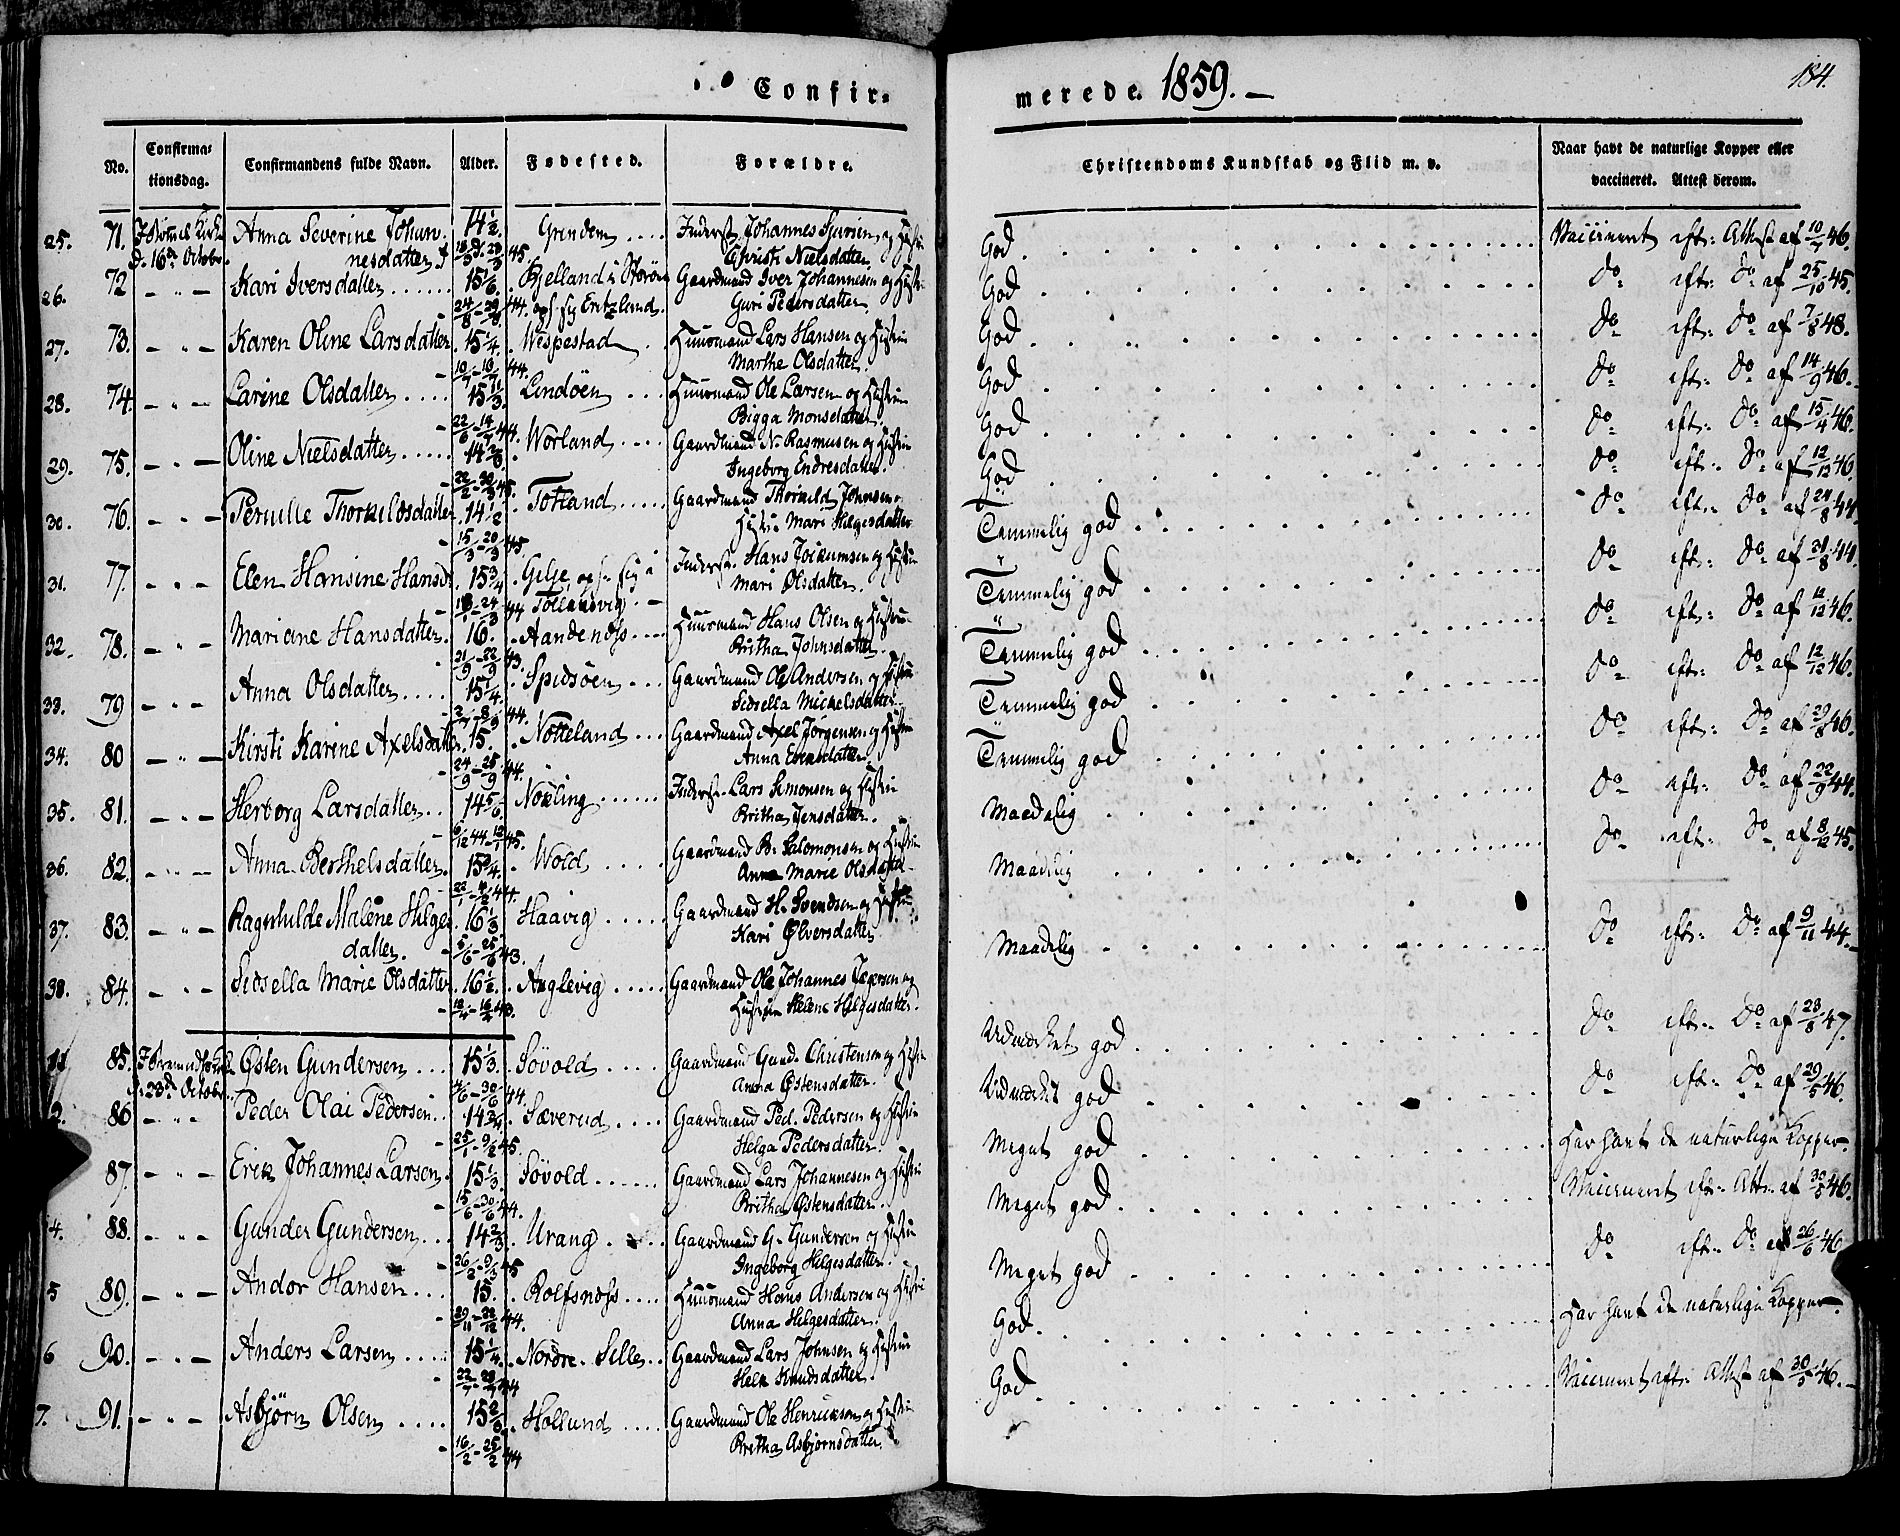 Confir-
merede. 1859. —
184.
No. Confirmationsdag. Confirmandens fulde Navn. Alder. Fødested. Forældre.
Christendoms Kundskab og Flid m. v.
Naar havt de naturlige Kopper eller vaccineret. Attest derom.
25. 71. d. 16de Octobr. Anna Severine Johannesdatter 14½ Grindem .... Inderst. Johannes Sjursen og Hustru Christi Nielsdatter God. Vaccineret eft: Attest af 10/7 46.
26. 72 — " — Kari Iversdatter ...... 15 1/6 Gaardmand Iver Johannesen og Hustru Guri Pedersdatter God do eft: do af 25/10 45.
27. 73. — " — Karen Oline Larsdatter 15¼ Wespestad Huusmand Lars Hansen og Hustru Marthe Olsdatter God do eft: do af 7/8 48.
28. 74. — " — Larine Olsdatter .... 15⅓ Lindöen ... Huusmand Ole Larsen og Hustru Bigga Monsdatter God do eft: do af 14/9 46.
29. 75. — " — Oline Nielsdatter ..... 14⅔ Worland .... Gaardmand N. Rasmusen og Hustru Ingeborg Endresdatter God do eft: do af 15/4 46.
30. 76. — " — Pernille Thorkildsdatter 14½ Totland ..... Gaardmand Thorkild Johnsen Hustru Mari Helgesdatter God do eft: do af 12/12 46
31. 77. — " — Elen Hansine Hansd 15¾ Gilje Inderst. Hans Joikumsen og Hustru Mari Olsdatter Temmelig god do eft: do af 24/8 44
32. 78. — " — Mariane Hansdatter 16. Aandenæss .... Huusmand Hans Olsen og Hustru Britha Johnsdatter Temmelig god do eft: do af 31/8 44.
33. 79 — " — Anna Olsdatter .... 15¼ Spidsöen ... Gaardmand Ole Andersen og Hustru Sidsella Mickelsdatter Temmelig god do eft: do af 46.
34. 80 — " — Kirsti Karine Axelsdatter 15. Notteland ... Gaardmand Axel Jørgensen og Hustru Anna Temmelig god do eft: do af 12/12 46.
35. 81. — " — Herborg Larsdatter .. 14 5/6 Nordling ...... Inderst. Lars Simonsen og Hustru Britha Jensdatter. Temmelig god do eft: do af 29/8 46.
36. 82. — " — Anna Berthelsdatter. 15¾ Wold .... Gaardmand B. Salomonsen og Hustru Anna Marie Olsdatter Maadelig do eft: do af 22/9 44.
37. 83. — " — Ragnhilde Malene Helgesdatter. 16⅓ Haavig ..... Gaardmand H. Svendsen og Hustru Kari Ølversdatter Maadelig do eft: do af 8/12 45.
38. 84. — " — Sidsella Marie Olsdatter 16½ Anglevig ..... Gaardmand Ole Johannes Jægersen og Hustru Helene Helgesdatter. Maadelig do eft: do af 9/11 44.
85. d. 23de Octobr. Østen Gundersen ... 15⅓ Søvold ..... Gaardmand Gund. Christensen og Hustru Anna Østensdatter. Udmærket god do eft: do af 23/8 47.
2. 86 — " — Peder Olai Pedersen .. 14¾ Sæverud .... Gaardmand Ped. Pedersen og Hustru Helga Pedersdatter. Udmærket god do eft: do af 29/5 46.
87. — " — Erik Johannes Larsen. 15⅓ Søvold ...... Gaardmand Lars Johannesen og Hustru Britha Østensdatter. Meget god Har havt de naturlige Kopper.
4. 88. — " — Gunder Gundersen ... 14⅔ Urang .... Gaardmand G. Gundersen og Hustru Ingeborg Helgesdatter. Meget god Vaccineret eft: Att: af 30/5 46.
5 89. — " — Andor Hansen ... 15. Rolfsnæss .... Huusmand Hans Andersen og Hustru Anna Helgesdatter. Meget god do eft: do af 26/6 46
6 90. — " — Anders Larsen .... 15¼ Nordre Selle .. Gaardmand Lars Johnsen og Hustru Knudsdatter. God. Har havt de naturlige Kopper.
7. 91. — " — Asbjørn Olsen .... 15⅔ Hollund .... Gaardmand Ole Henriksen og Hustru Britha Asbjørnsdatter. God. Vaccineret eft: Attest af 30/5 46.